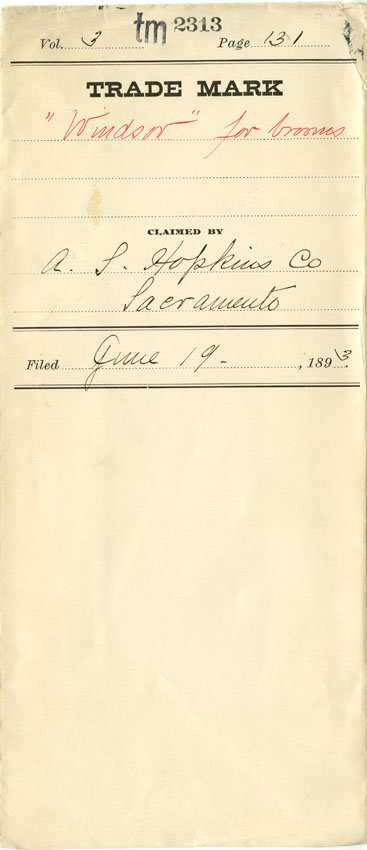 tm 2313
Vol. 3 Page 131
TRADE MARK
"Windsor" for brooms
CLAIMED BY
A. S. Hopkins Co
Sacramento
Filed June 19 - , 1893.